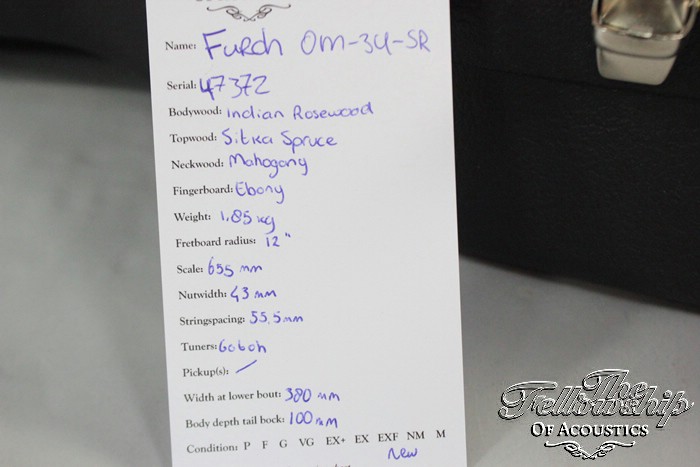 Name: Furch OM-34-SR
Serial: 47372
Bodywood: Indian Rosewood
Topwood: Sitka Spruce
Neckwood: Mahogany
Fingerboard: Ebony
Weight: 1,85 kg
Fretboard radius: 12"
Scale: 655 mm
Nutwidth: 43 mm
Stringspacing: 55,5mm
Tuners: Gotoh
Pickup(s): /
Width at lower bout: 380 mm
Body depth tail bock: 100 mm
Condition: P F G VG EX+ EX EXF NM M
New
The
Fellowship
OF ACOUSTICS